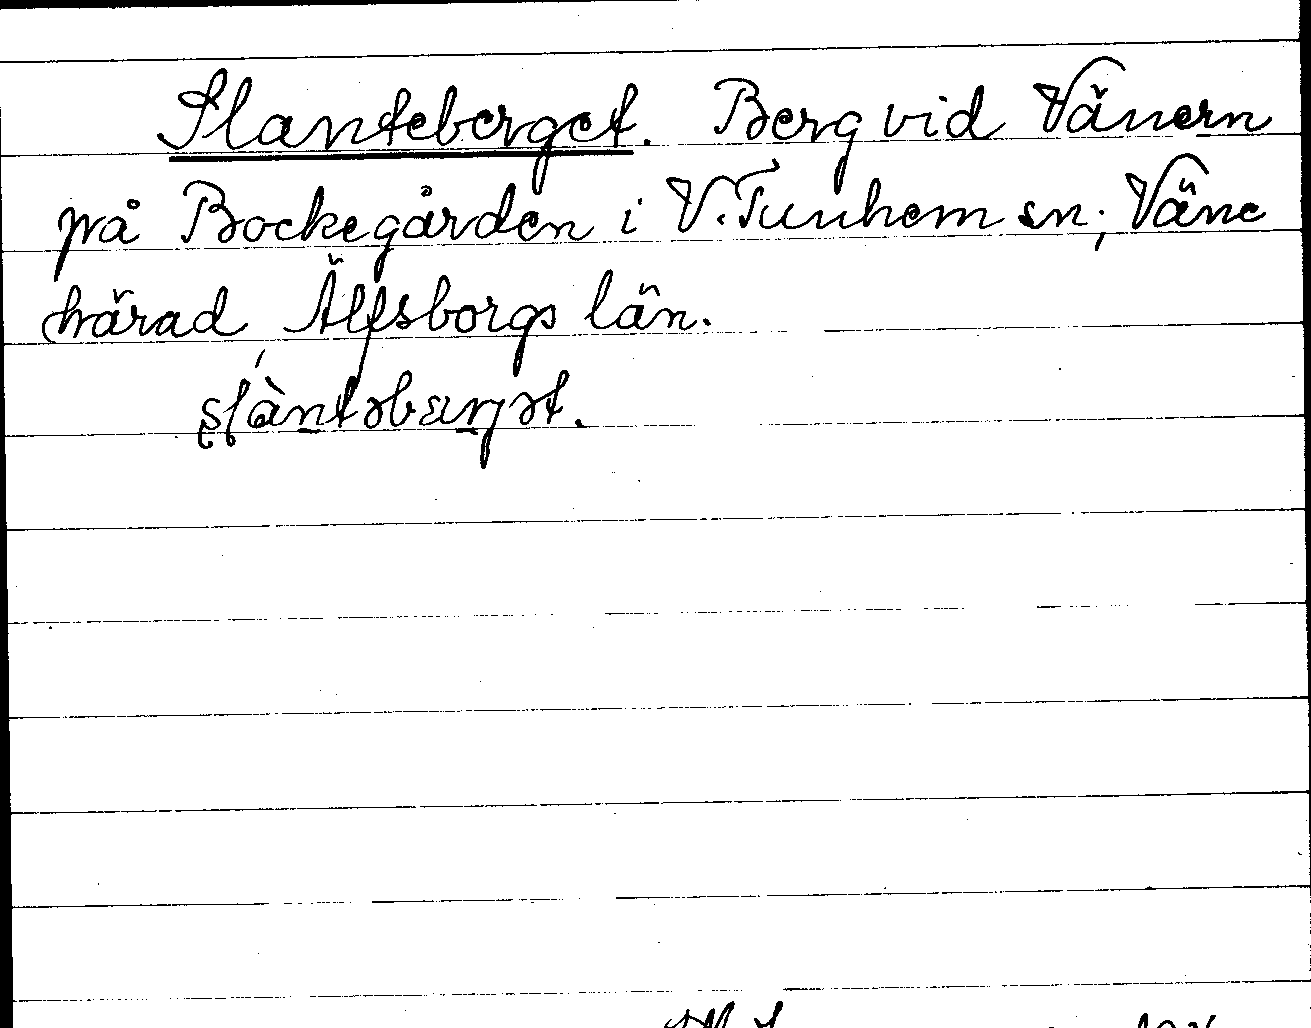 Slanteberget. Berg vid Vänern
på Bockegården i V. Tunhem sn; Väne
härad, Älfsborgs län.